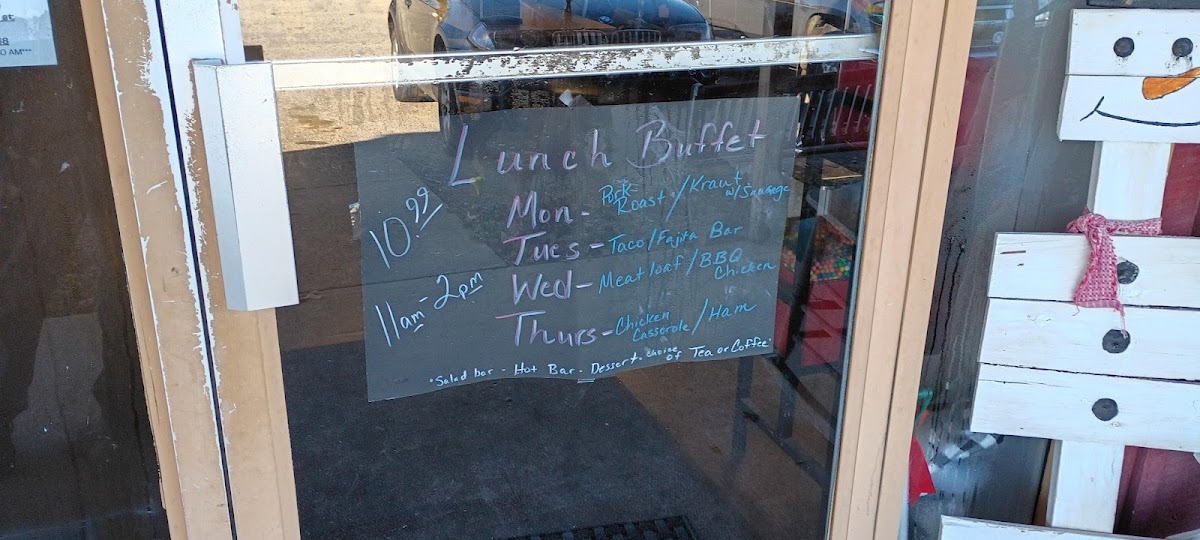 at
O AM***
Lunch Buffet
10.99
11am-2pm
Mon- Pork Roast/Kraut w/Sausage
Tues- Taco/Fajita Bar
Wed- Meatloaf/BBQ Chicken
Thurs- Chicken Casserole/Ham
*Salad bar - Hot Bar - Dessert - choice of Tea or Coffee*